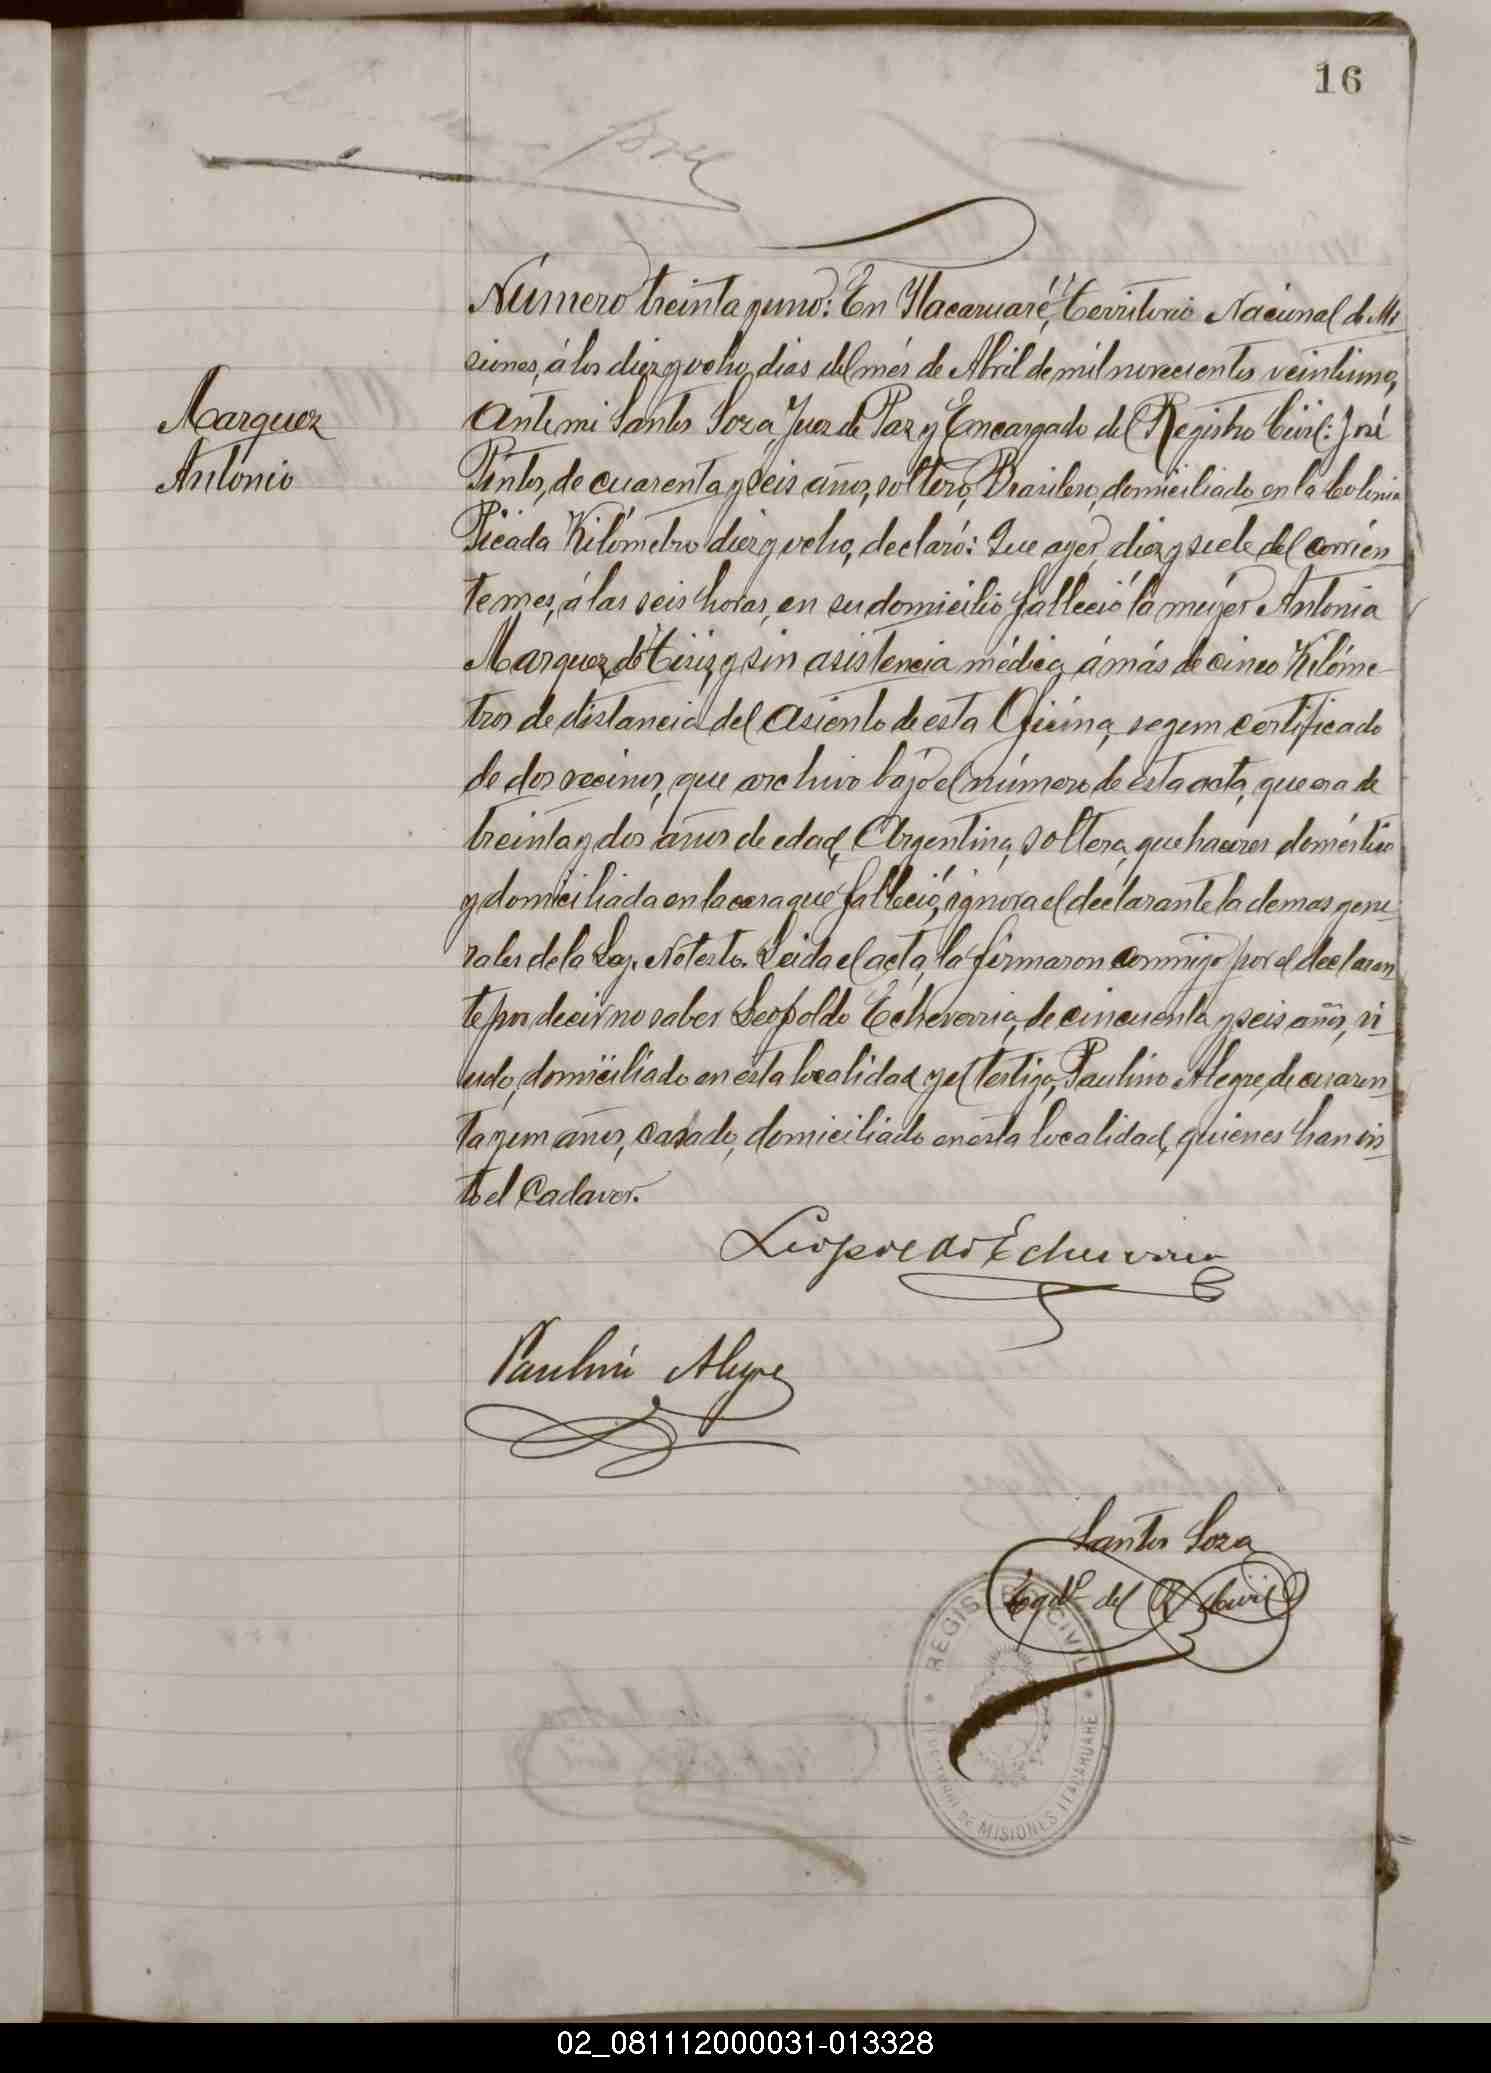 16
Número treinta y uno: En Ytacaruaré, territorio Nacional de Mi
siones, á los diez y ocho dias del més de Abril de mil novecientos veintiuno,
Marquez
Ante mi Santos Soza, Juez de Paz y Encargado del Registro Civil: José
Antonio
Pintos, de cuarenta y seis años, soltero, Brasilero, domiciliado en la Colonia
Picada Kilómetro diez y ocho, declaró: Que ayer, diez y siete del corrien
te mes, á las seis horas, en su domicilio falleció la mujer Antonia
Marquez de tisis, y sin asistencia médica, á más de cinco Kilóme
tros de distancia del asiento de esta Oficina, segun certificado
de dos vecinos, que archivo bajo el número de esta acta, que era de
treinta y dos años de edad, Argentina, soltera, que haceres domésticos
y domiciliada en la casa que falleció, ignora el declarante la demas gene
rales de la Ley. No testo. Leida el acta, la firmaron conmigo por el declaran
te por decir no saber Leopoldo Echeverria, de cincuenta y seis años, vi
udo, domiciliado en esta localidad y el testigo, Paulino Alegre, de cuaren
ta y un años, casado, domiciliado en esta localidad, quienes han vis
to el Cadaver.
Leopoldo Echeverria
Paulino Alegre
Santos Soza
Egdo. del R. Civil
REGISTRO CIVIL
DE MISIONES ITACARUARE
02_081112000031-013328